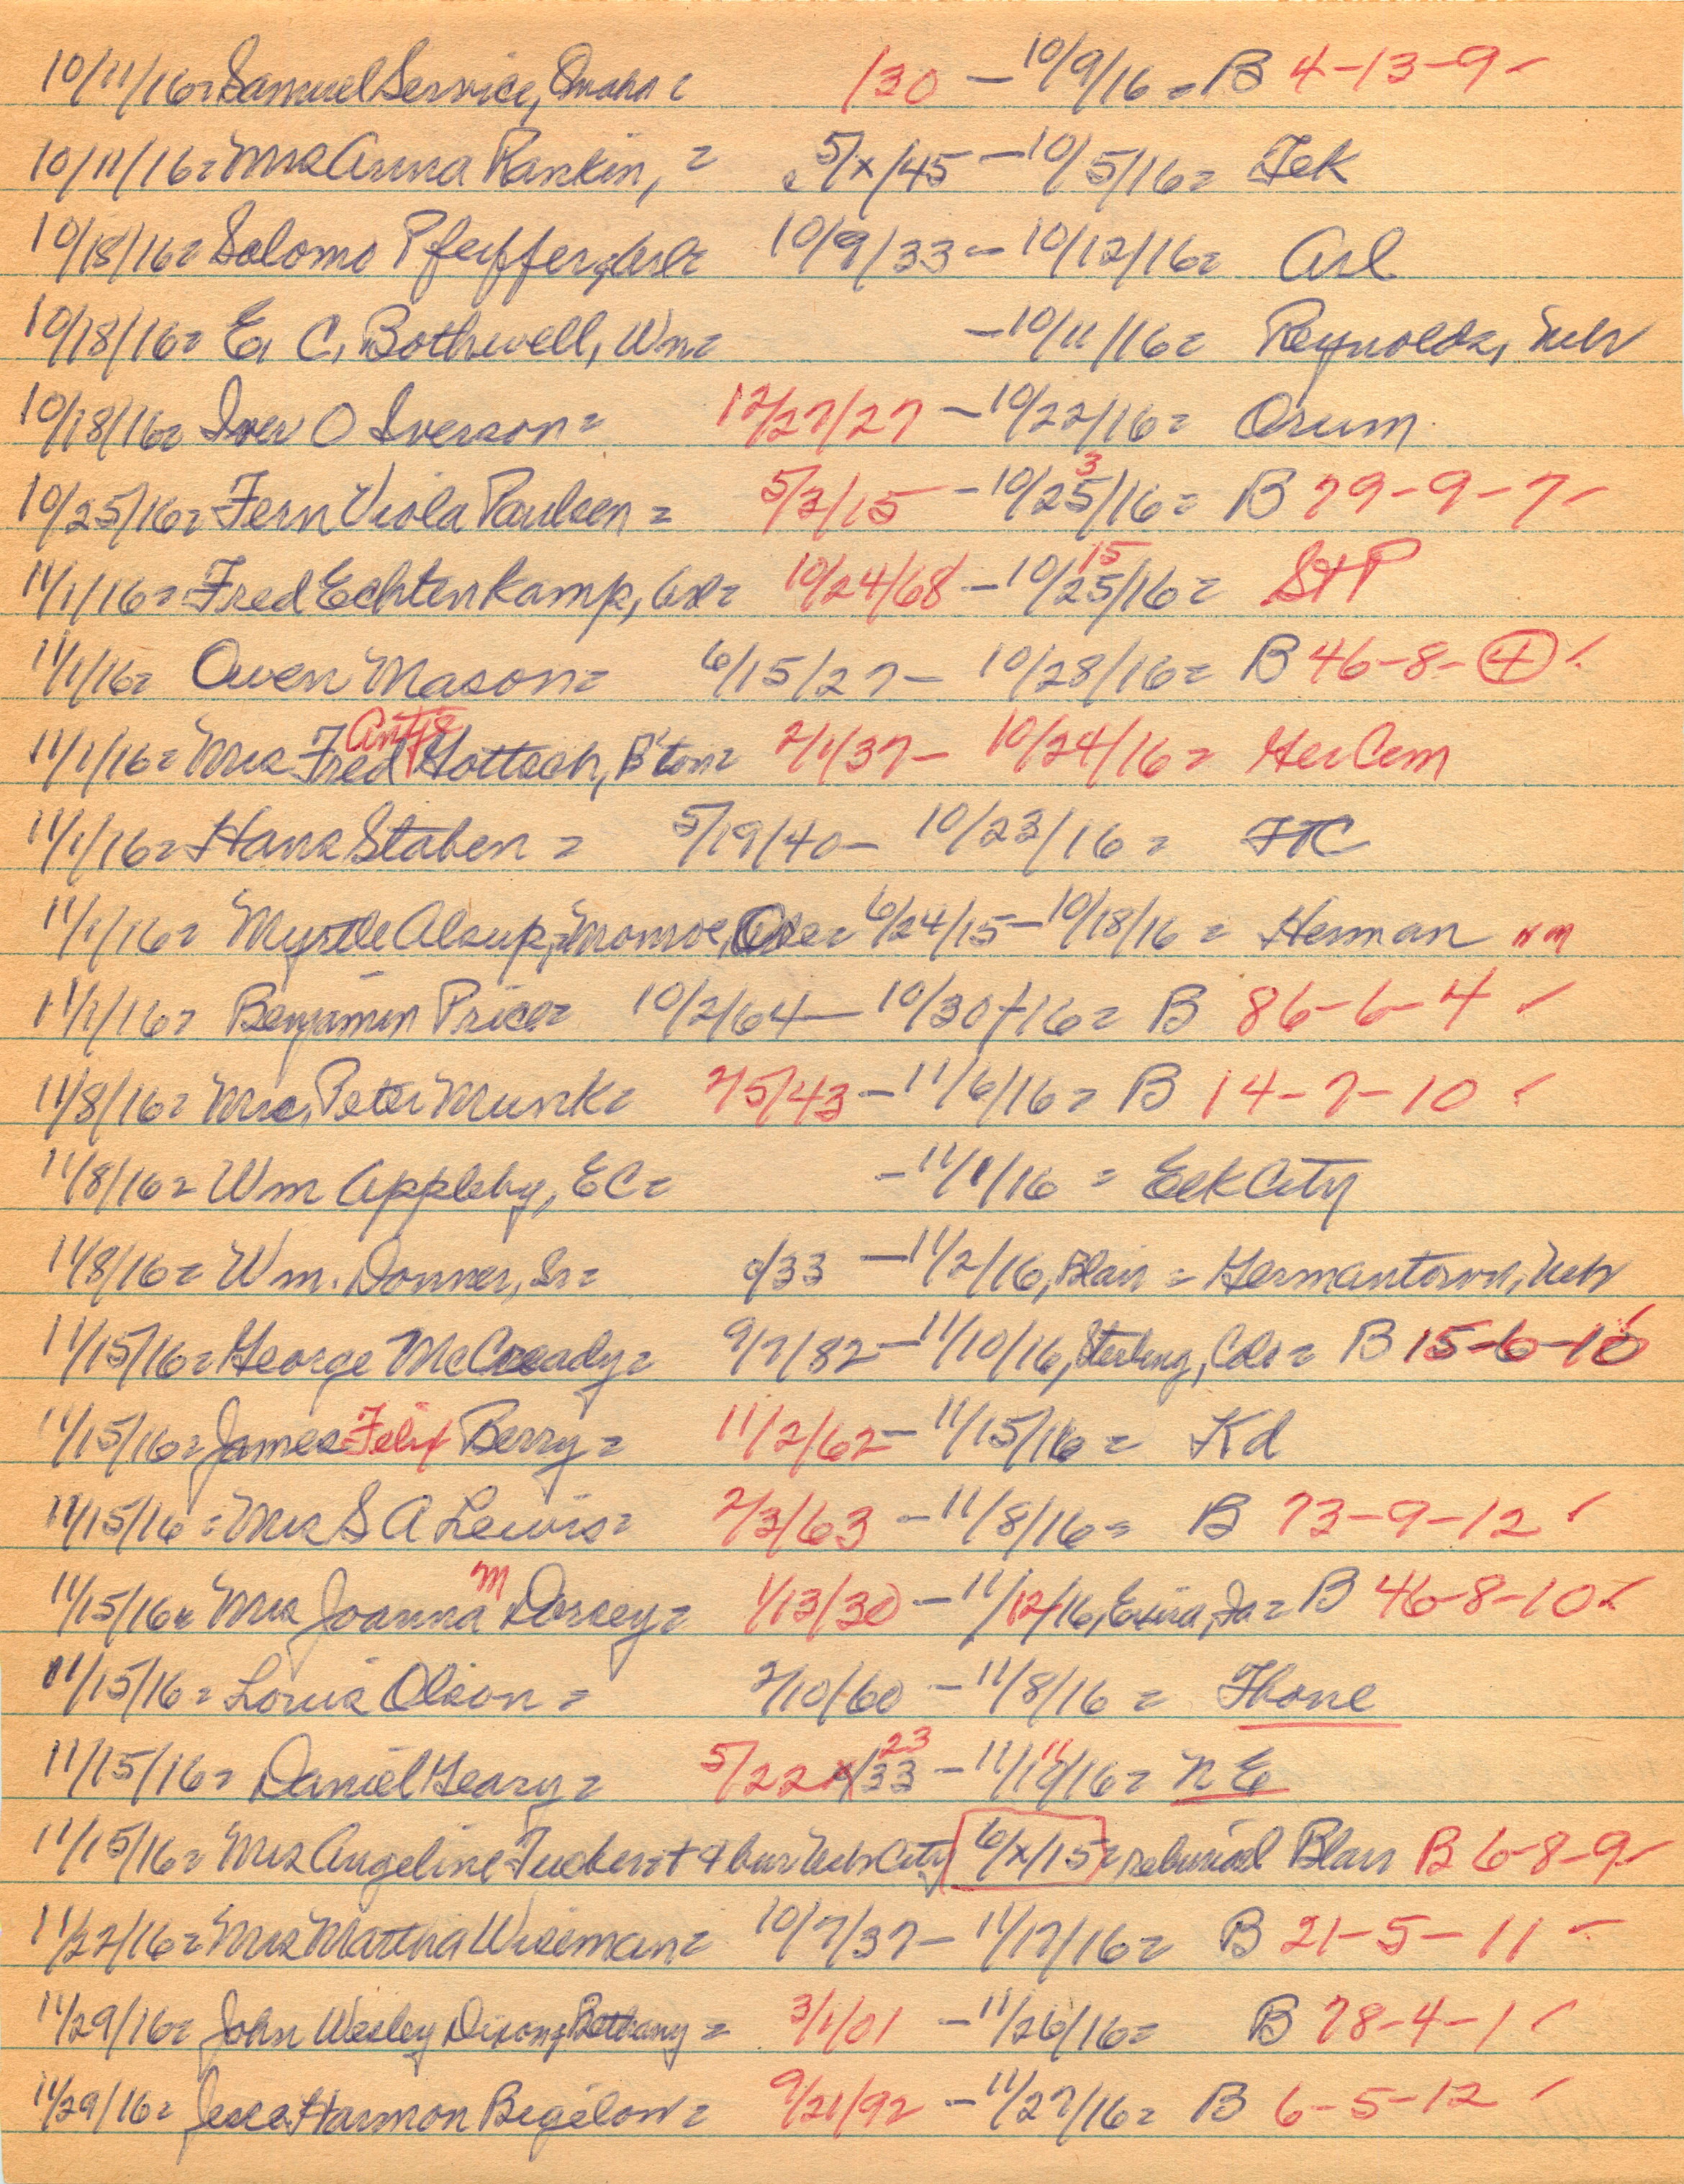 10/11/16= Samuel Service, Omaha = 1830 - 10/9/16 = B 4-13-9 ✓
10/11/16= Mrs Anna Rankin, = 5/x/45 - 10/5/16= Tek
10/18/16= Solomo Pfeiffer, Arl= 10/9/33 - 10/12/16= Arl
10/18/16= E. C. Bothwell, Wn= - 10/11/16= Reynolds, Neb
10/18/16= Iver O Iverson= 12/27/27 - 10/22/16= Orum
10/25/16= Fern Viola Paulsen = 5/3/15 - 10/25/16= B 79-9-7 ✓
11/1/16= Fred Echtenkamp, Arl= 10/24/68 - 10/25/16= StP
11/1/16= Owen Mason= 6/15/27 - 10/28/16= B 46-8-4 ✓
11/1/16= Mrs Fred Hottsch, B'ton= 2/1/37 - 10/24/16= Her Cem
11/1/16= Hans Staben = 5/19/40 - 10/23/16= FTC
11/1/16= Myrtle Alsup, Monroe, Ore= 6/24/15 - 10/18/16= Herman NM
11/1/16= Benjamin Price= 10/2/64 - 10/30/16= B 86-6-4 ✓
11/8/16= Mrs. Peter Munk= 2/5/43 - 11/6/16= B 14-7-10 ✓
11/8/16= Wm Appleby, EC= - 11/1/16 = Elk City
11/8/16= Wm. Donner, Sr= /33 - 11/2/16, Blair = Germantown, Neb
11/15/16= George McCready= 9/7/82 - 11/10/16, Sterling, Colo= B 15-6-10 ✓
11/15/16= James Felix Berry= 11/2/62 - 11/15/16= Kd
11/15/16= Mrs S A Lewis= 2/3/63 - 11/8/16= B 73-9-12 ✓
11/15/16= Mrs Joanna M Dorsey= 1/13/30 - 11/12/16, Ia= B 46-8-10 ✓
11/15/16= Louis Olson = 2/10/60 - 11/8/16= Fhone
11/15/16= Daniel Geary= 5/22/33 23 - 11/11/16= N E
11/15/16= Mrs Angeline Tucker= + bur Neb City 6/x/15= reburial Blair B 6-8-9 ✓
11/22/16= Mrs Martha Wiseman= 10/7/37 - 11/17/16= B 21-5-11 ✓
11/29/16= John Wesley Dixon, Bethany = 3/1/01 - 11/26/16= B 78-4-1 ✓
11/29/16= Jesse Harmon Bigelow= 9/21/92 - 11/27/16= B 6-5-12 ✓